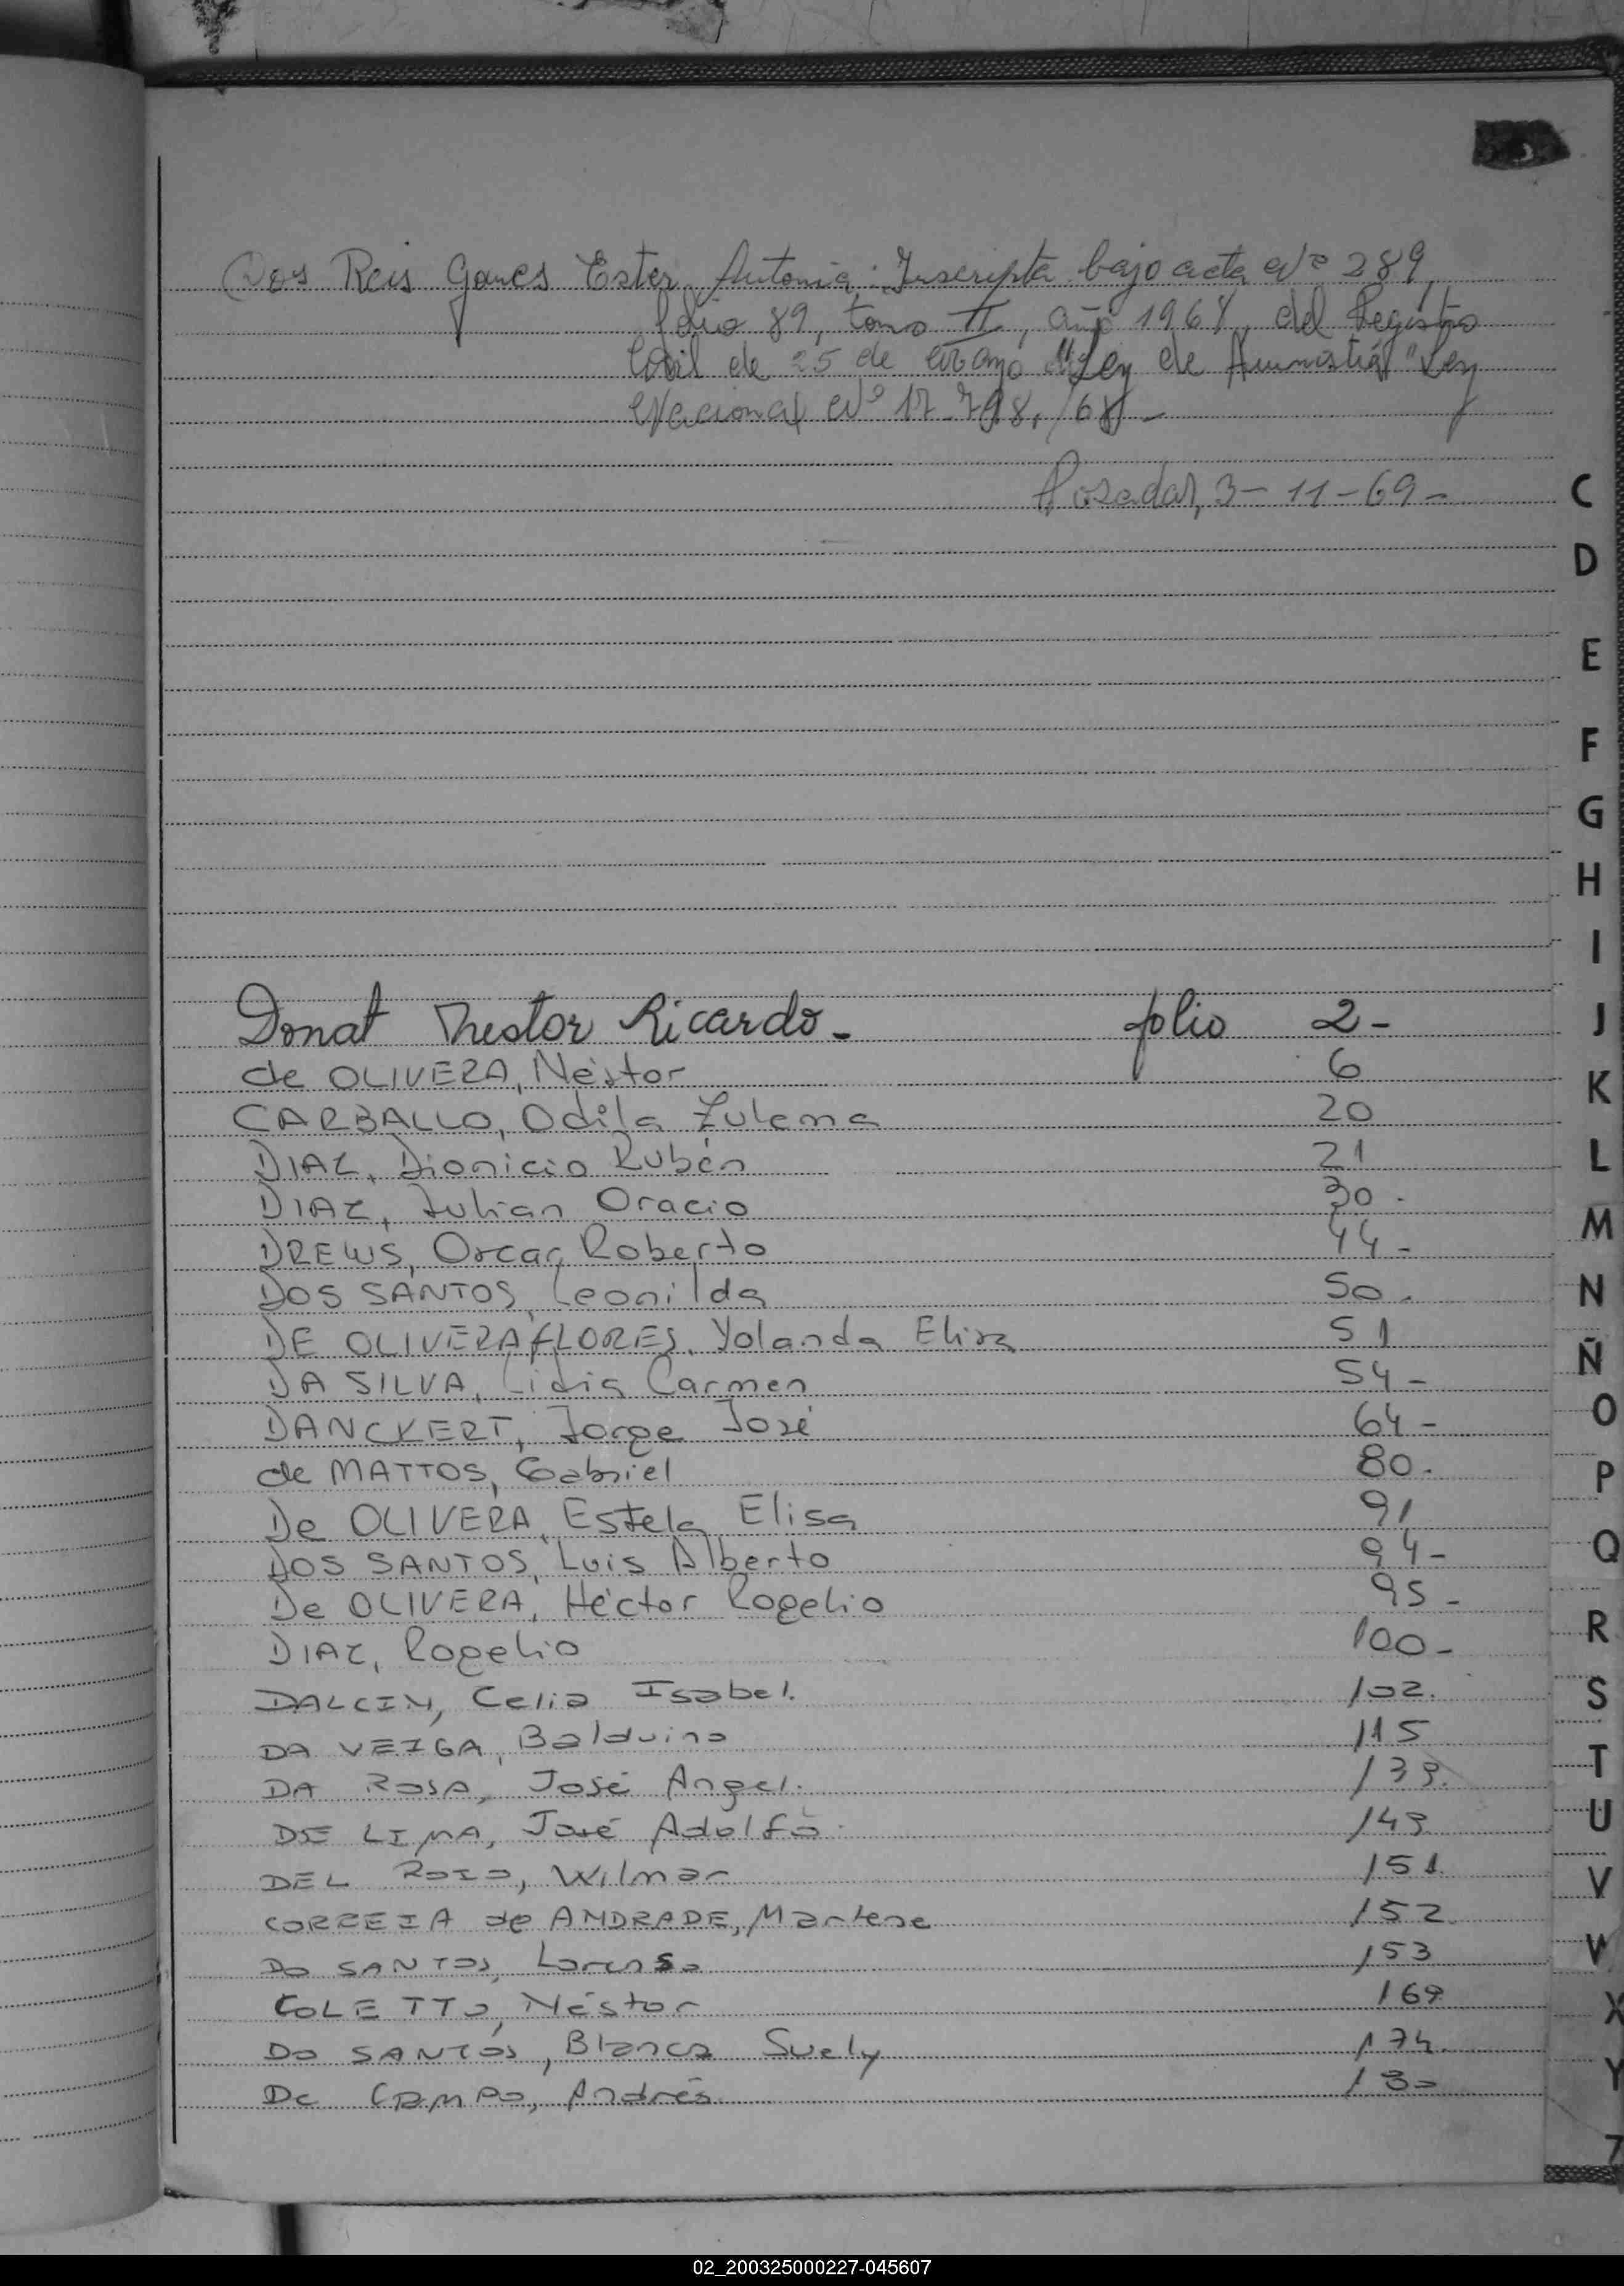 Dos Reis Gomes Ester Antonia: Inscripta bajo acta Nº 289,
folio 89, tomo II, año 1968, del Registro
Civil de 25 de Mayo "Ley de Amnistía" Ley
Nacional Nº 17.798./68 -
Posadas, 3-11-69-
C
D
E
F
G
H
I
Donat Nestor Ricardo. folio 2- J
de OLIVERA, Néstor 6
K
CARBALLO, Odila Zulema 20
DIAZ, Dionicio Rubén 21 L
DIAZ, Julian Oracio 30.
M
DREWS, Oscar Roberto 44-
DOS SANTOS, Leonilda 50. N
DE OLIVERA FLORES, Yolanda Elisa 51
Ñ
DA SILVA, Lidia Carmen 54-
DANCKERT, Jorge José 64- O
de MATTOS, Gabriel 80. P
De OLIVERA, Estela Elisa 91
DOS SANTOS, Luis Alberto 94- Q
De OLIVERA, Héctor Rogelio 95-
R
DIAZ, Rogelio 100-
DALCIN, Celia Isabel. 102. S
DA VEIGA, Balduino 115
T
DA ROSA, José Angel.
DE LIMA, José Adolfo. U
DEL ROIO, Wilmar 151. V
CORREIA de ANDRADE, Marlene 152.
DO SANTOS, Lorenso 153 W
COLETTO, Néstor 169 X
DO SANTOS, Blanca Suely 174.
Y
De CAMPO, Andrés.
Z
02_200325000227-045607